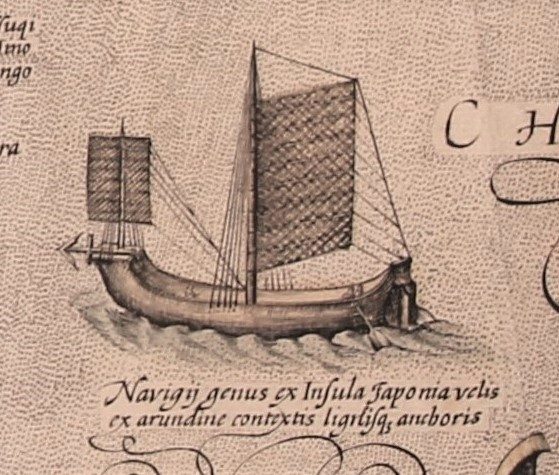 ra
C H
Navigij genus ex Insula Japonia velis
ex arundine contextis ligńisq; anchoris